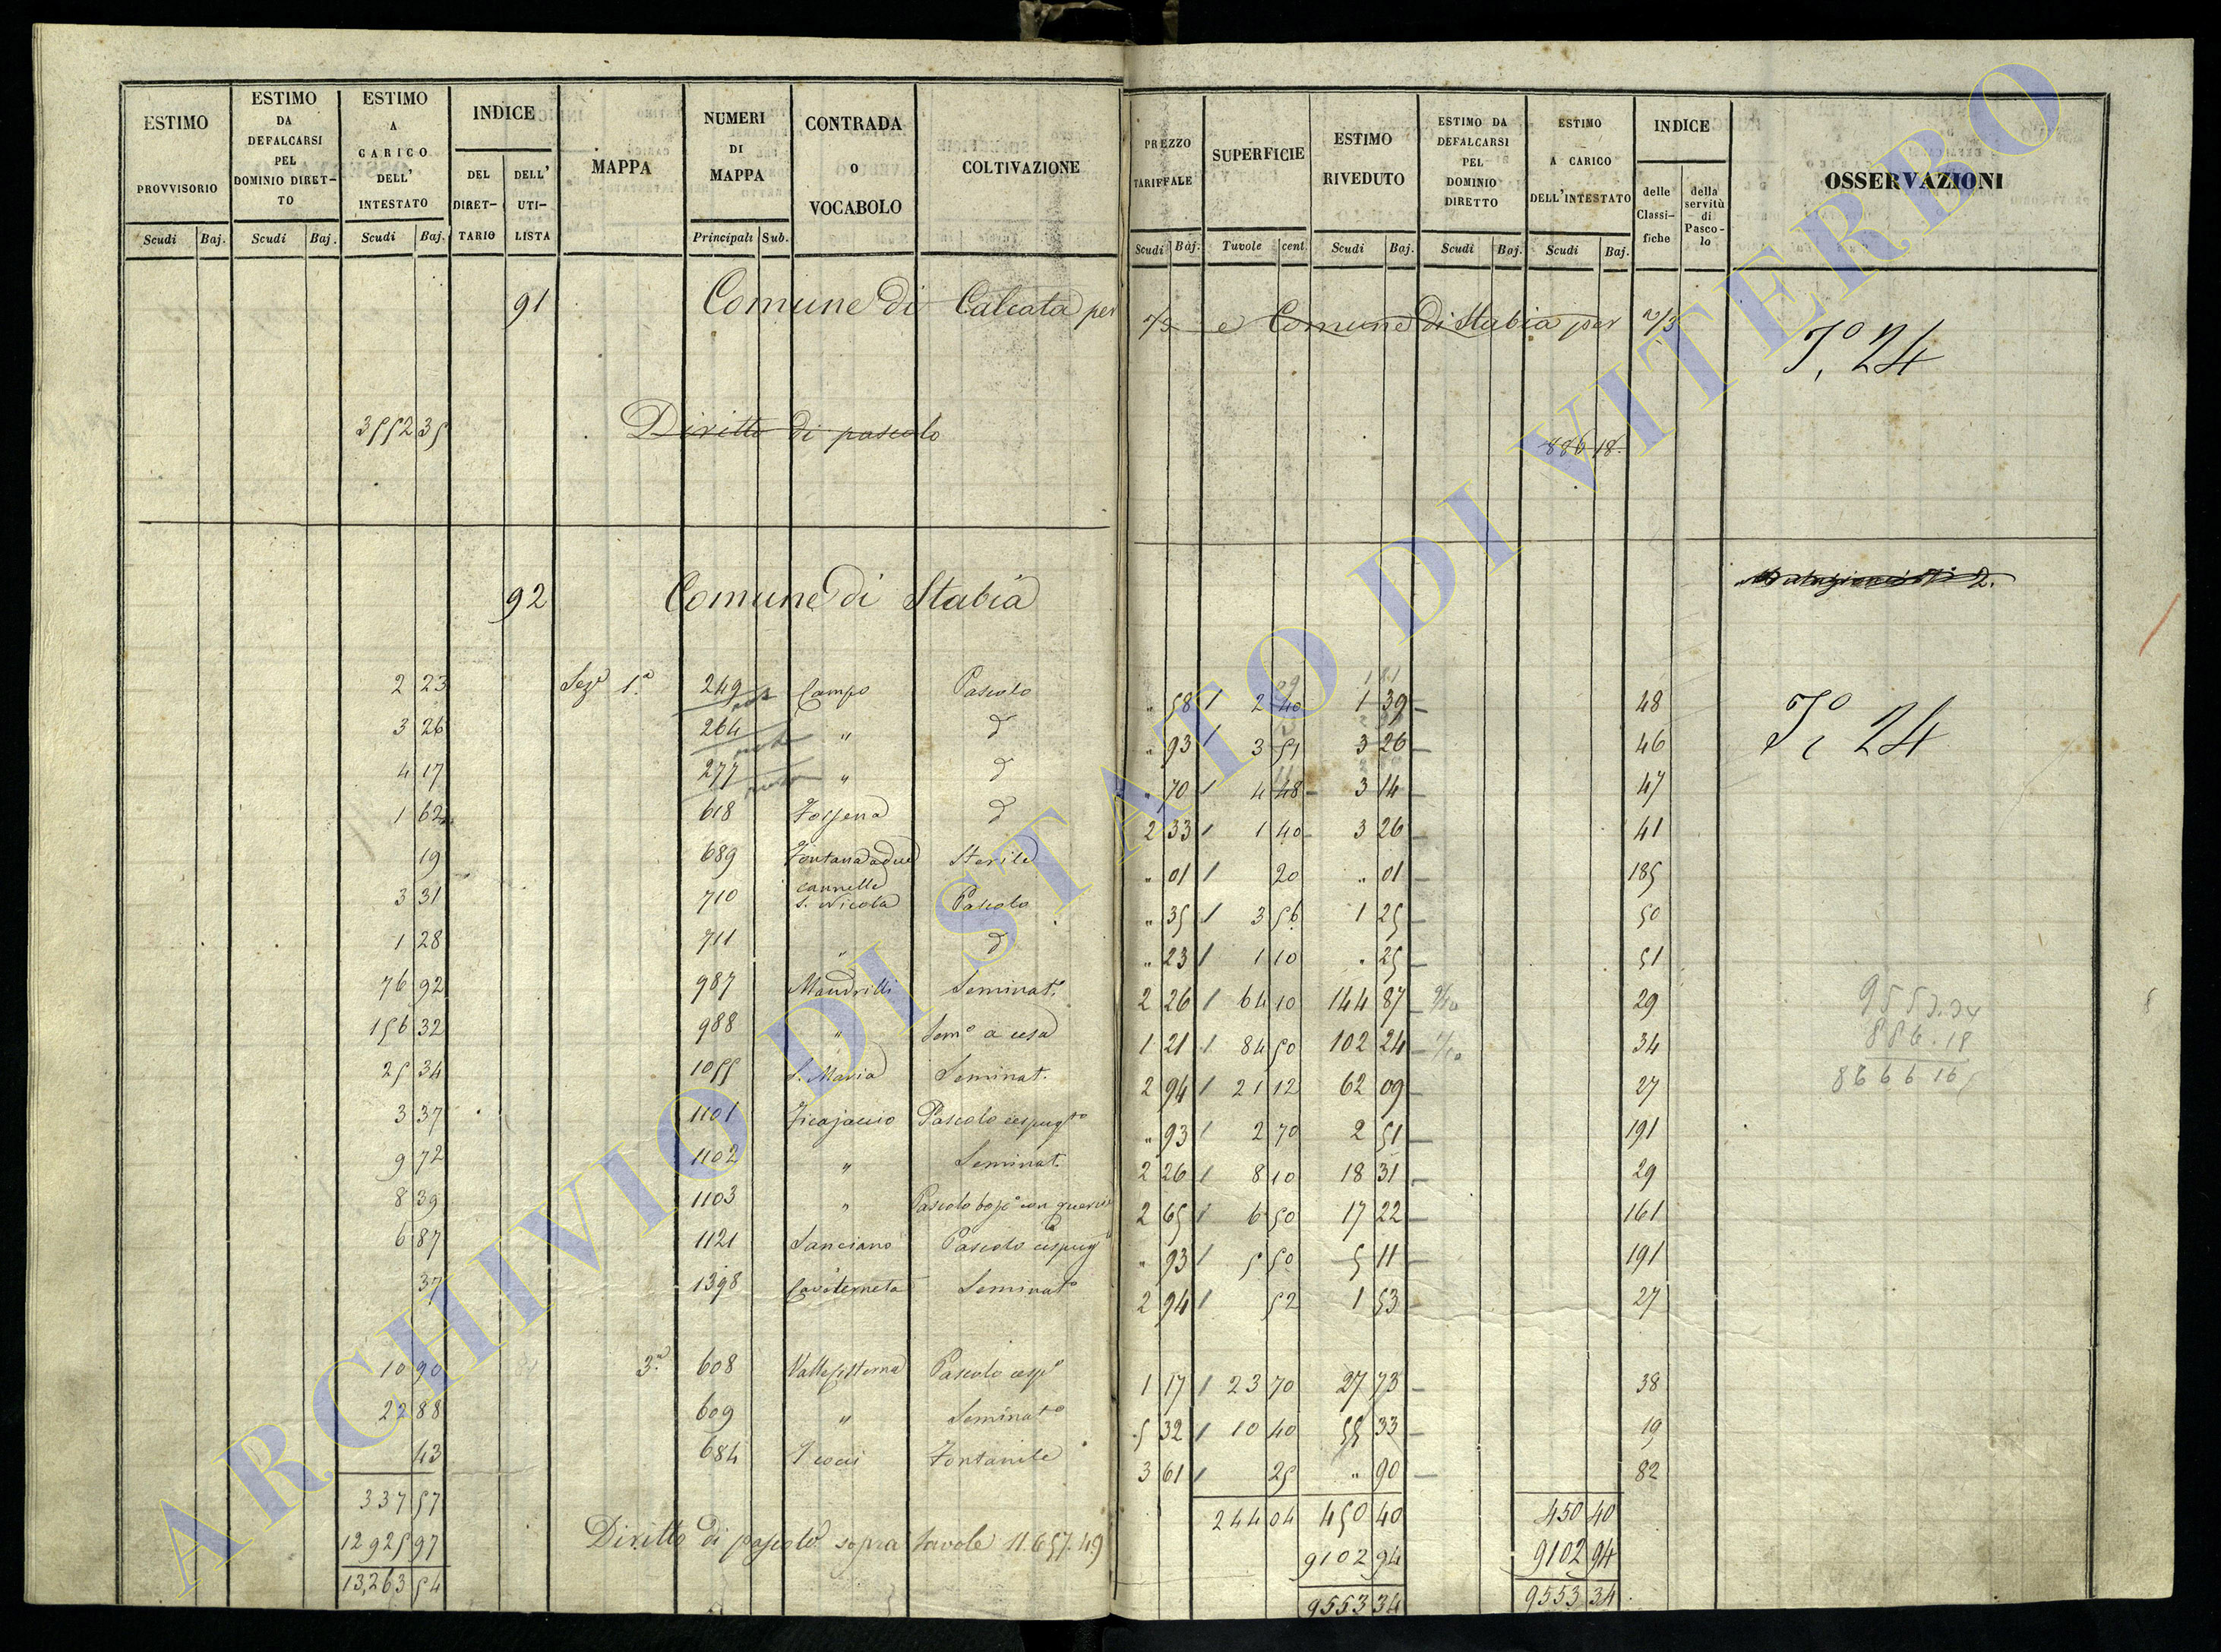 ESTIMO PROVVISORIO Scudi Baj.
ESTIMO DA DEFALCARSI PEL DOMINIO DIRET- TO Scudi Baj.
ESTIMO A CARICO DELL' INTESTATO Scudi Baj.
INDICE DEL DIRET- TARIO DELL' UTI- LISTA
MAPPA
NUMERI DI MAPPA Principali Sub.
CONTRADA O VOCABOLO
COLTIVAZIONE
PREZZO TARIFFALE Scudi Baj.
SUPERFICIE Tavole cent
ESTIMO RIVEDUTO Scudi Baj.
ESTIMO DA DEFALCARSI PEL DOMINIO DIRETTO Scudi Baj.
ESTIMO A CARICO DELL'INTESTATO Scudi Baj.
INDICE delle Classi- fiche della servitù di Pasco- lo
OSSERVAZIONI
91 Comune di Calcata per 1/3 e Comune di Stabia per 2/3
T.º 24
3552 35 Diritto di pascolo 886 18
92 Comune di Stabia
2 23 Sezº 1ª 249 Campo Pascolo " 58 / 2 40 1 39 48
T.º 24
3 26 264 " d " 93 / 3 51 3 26 46
4 17 277 " d " 70 / 4 48 3 14 47
1 62 618 d 2 33 / 1 40 3 26 41
19 689 Fontana a due cannelle Sterile " 01 / 20 " 01 185
3 31 710 S. Nicola Pascolo " 35 / 3 56 1 25 50
1 28 711 " d " 23 / 1 10 " 25 51
76 92 987 Mandrilli Seminat. 2 26 / 64 10 144 87 29
156 32 988 " Semº a cesa 1 21 / 84 50 102 24 34
25 34 1055 S. Maria Seminat. 2 94 / 21 12 62 09 27
3 37 1101 Ficajaccio Pascolo cespugtº " 93 / 2 70 2 51 191
9 72 1102 " Seminat. 2 26 / 8 10 18 31 29
8 39 1103 " Pascolo bosº con querce 2 65 / 6 50 17 22 161
6 87 1121 Lanciano Pascolo cespug " 93 / 5 50 5 11 191
37 1398 Seminatº 2 94 / 52 1 53 27
10 90 3ª 608 Valle cisterna Pascolo cespº 1 17 / 23 70 27 73 38
22 88 609 " Seminatº 5 32 / 10 40 55 33 19
43 684 Fontanile 3 61 / 25 " 90 82
337 57 244 04 450 40 450 40
12925 97 Diritto di pascolo sopra tavole 11.657.49 9102 94 9102 94
13,263 54 9553 34 9553 34
9553.34
886.18
8666 16
ARCHIVIO DI STATO DI VITERBO